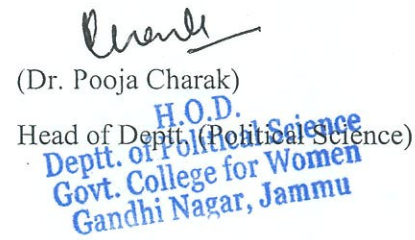 (Dr. Pooja Charak)
H.O.D.
Head of Deptt. (Political Science)
Deptt. of Political Science
Govt. College for Women
Gandhi Nagar, Jammu